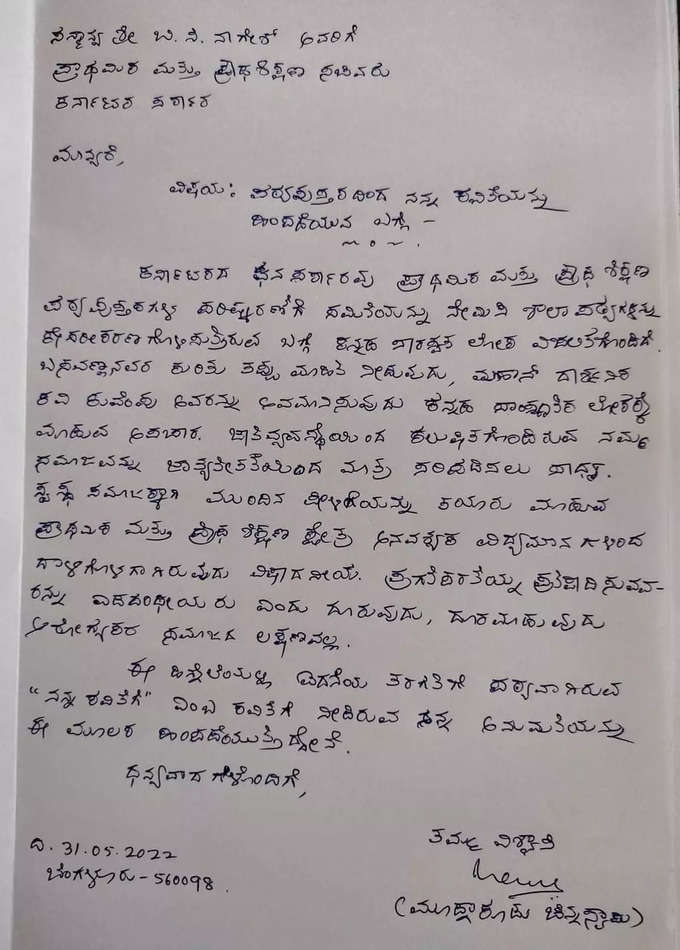 ಸನ್ಮಾನ್ಯ ಶ್ರೀ ಬಿ. ಸಿ. ನಾಗೇಶ್ ಅವರಿಗೆ
ಪ್ರಾಥಮಿಕ ಮತ್ತು ಪ್ರೌಢಶಿಕ್ಷಣ ಸಚಿವರು
ಕರ್ನಾಟಕ ಸರ್ಕಾರ
ಮಾನ್ಯರೆ,
ವಿಷಯ: ಪಠ್ಯಪುಸ್ತಕದಿಂದ ನನ್ನ ಕವಿತೆಯನ್ನು
ಹಿಂಪಡೆಯುವ ಬಗ್ಗೆ -
ಕರ್ನಾಟಕದ ಘನ ಸರ್ಕಾರವು ಪ್ರಾಥಮಿಕ ಮತ್ತು ಪ್ರೌಢ ಶಿಕ್ಷಣ
ಪಠ್ಯಪುಸ್ತಕಗಳ ಪರಿಷ್ಕರಣೆಗೆ ಸಮಿತಿಯನ್ನು ನೇಮಿಸಿ ಶಾಲಾ ಪಠ್ಯಗಳನ್ನು
ಕೇಸರೀಕರಣಗೊಳಿಸುತ್ತಿರುವ ಬಗ್ಗೆ ಕನ್ನಡ ಸಾರಸ್ವತ ಲೋಕ ವಿಚಲಿತಗೊಂಡಿದೆ.
ಬಸವಣ್ಣನವರ ಕುರಿತು ತಪ್ಪು ಮಾಹಿತಿ ನೀಡುವುದು, ಮಹಾನ್ ದಾರ್ಶನಿಕ
ಕವಿ ಕುವೆಂಪು ಅವರನ್ನು ಅವಮಾನಿಸುವುದು ಕನ್ನಡ ಸಾಂಸ್ಕೃತಿಕ ಲೋಕಕ್ಕೆ
ಮಾಡುವ ಅಪಚಾರ. ಜಾತಿವ್ಯವಸ್ಥೆಯಿಂದ ಕಲುಷಿತಗೊಂಡಿರುವ ನಮ್ಮ
ಸಮಾಜವನ್ನು ಜಾತ್ಯತೀತತೆಯಿಂದ ಮಾತ್ರ ಸರಿಪಡಿಸಲು ಸಾಧ್ಯ.
ಸ್ವಸ್ಥ ಸಮಾಜಕ್ಕಾಗಿ ಮುಂದಿನ ಪೀಳಿಗೆಯನ್ನು ತಯಾರು ಮಾಡುವ
ಪ್ರಾಥಮಿಕ ಮತ್ತು ಪ್ರೌಢ ಶಿಕ್ಷಣ ಕ್ಷೇತ್ರ ಅನವಶ್ಯಕ ವಿದ್ಯಮಾನಗಳಿಂದ
ದಾಳಿಗೊಳಗಾಗಿರುವುದು ವಿಷಾದನೀಯ. ಪ್ರಗತಿಪರತೆಯನ್ನು ಪ್ರತಿಪಾದಿಸುವವ-
ರನ್ನು ಎಡಪಂಥೀಯರು ಎಂದು ದೂರುವುದು, ದೂರಮಾಡುವುದು
ಆರೋಗ್ಯಕರ ಸಮಾಜದ ಲಕ್ಷಣವಲ್ಲ.
ಈ ಹಿನ್ನೆಲೆಯಲ್ಲಿ ಐದನೆಯ ತರಗತಿಗೆ ಪಠ್ಯವಾಗಿರುವ
"ನನ್ನ ಕವಿತೆಗೆ" ಎಂಬ ಕವಿತೆಗೆ ನೀಡಿರುವ ನನ್ನ ಅನುಮತಿಯನ್ನು
ಈ ಮೂಲಕ ಹಿಂಪಡೆಯುತ್ತಿದ್ದೇನೆ.
ಧನ್ಯವಾದಗಳೊಂದಿಗೆ,
ತಮ್ಮ ವಿಶ್ವಾಸಿ
ದಿ. 31.05.2022
ಬೆಂಗಳೂರು - 560098.
(ಮೂಡ್ನಾಕೂಡು ಚಿನ್ನಸ್ವಾಮಿ)